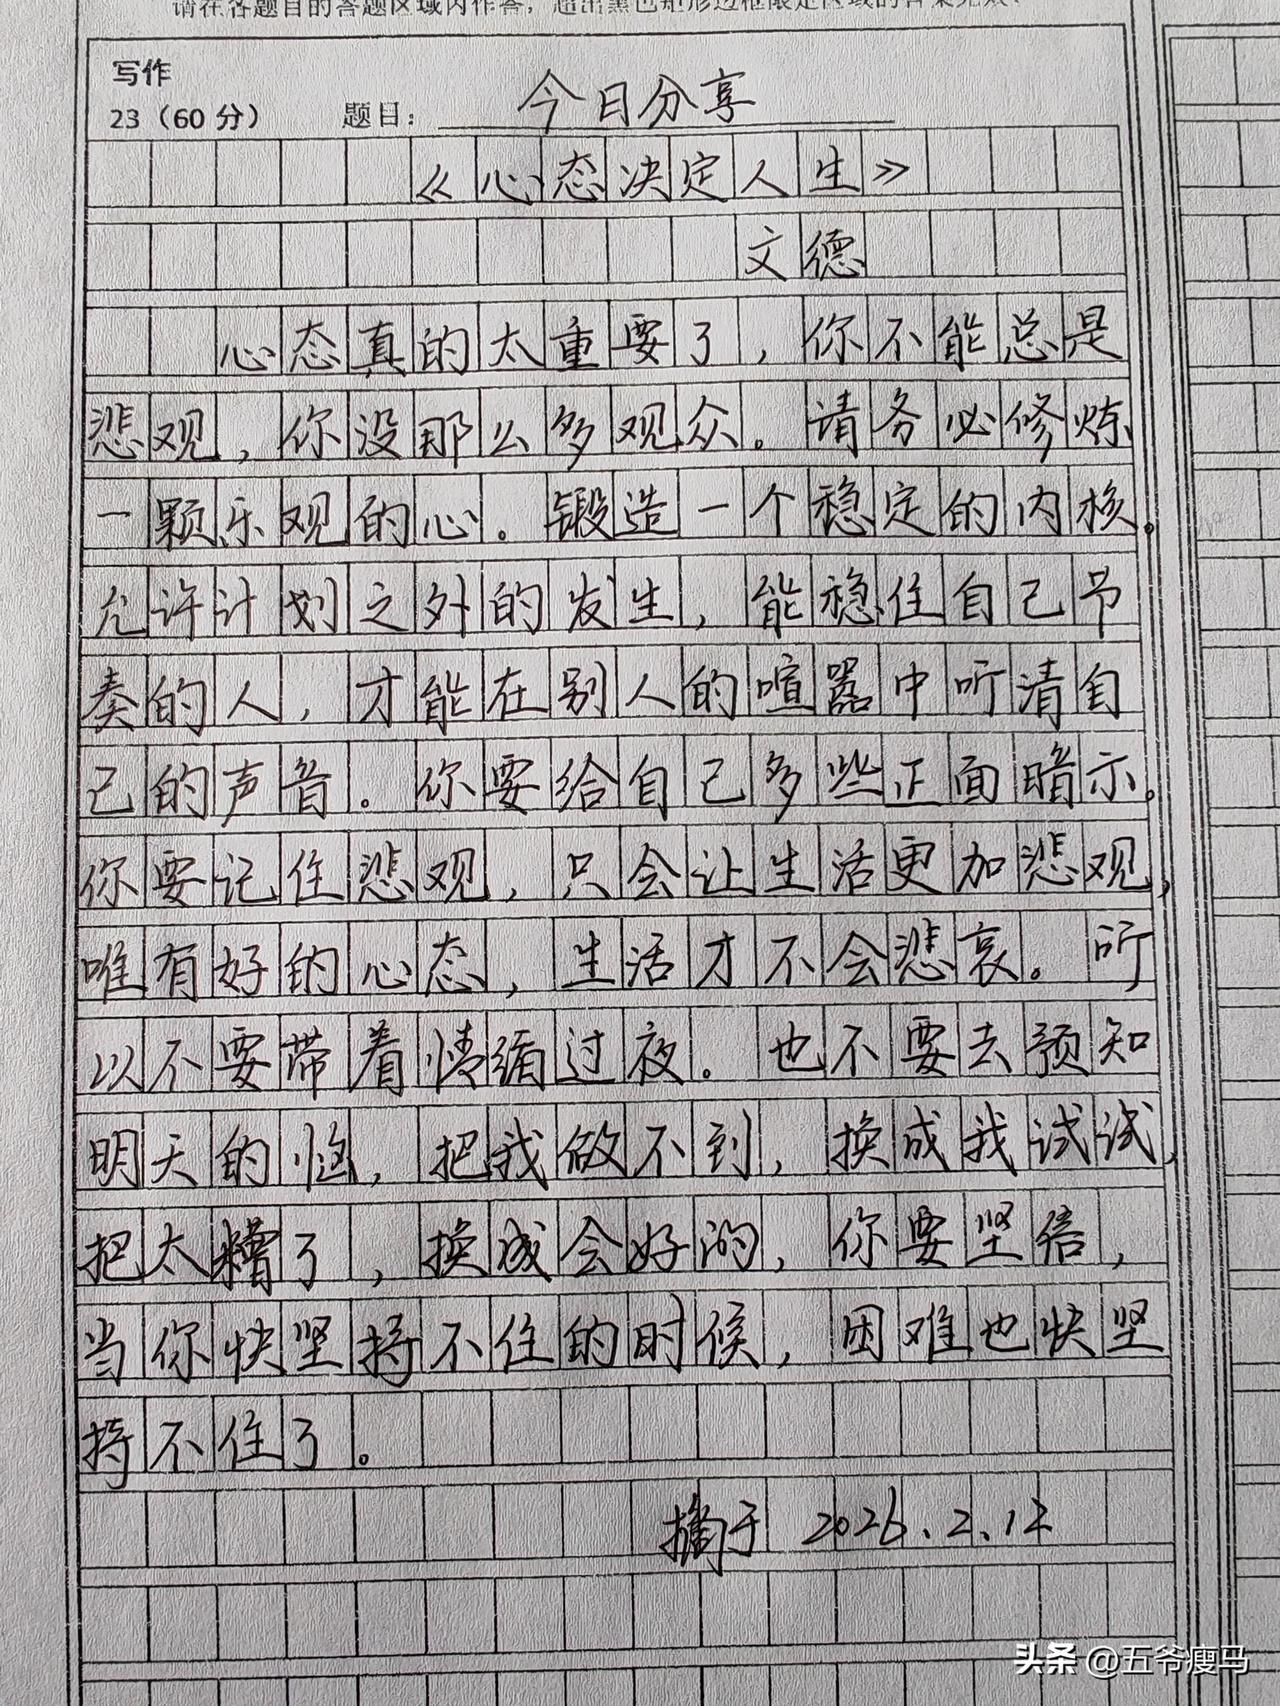 请在各题目的答题区域内作答，超出黑色矩形边框限定区域的答案无效！
写作
23（60 分） 题目： 今日分享
《心态决定人生》
文德
心态真的太重要了，你不能总是
悲观，你没那么多观众。请务必修炼
一颗乐观的心。锻造一个稳定的内核。
允许计划之外的发生，能稳住自己节
奏的人，才能在别人的喧嚣中听清自
己的声音。你要给自己多些正面暗示。
你要记住悲观，只会让生活更加悲观，
唯有好的心态，生活才不会悲哀。所
以不要带着情循过夜。也不要去预知
明天的恼，把我做不到，换成我试试，
把太糟了，换成会好的，你要坚信，
当你快坚持不住的时候，困难也快坚
持不住了。
摘于 2026.2.12
头条 @五爷瘦马